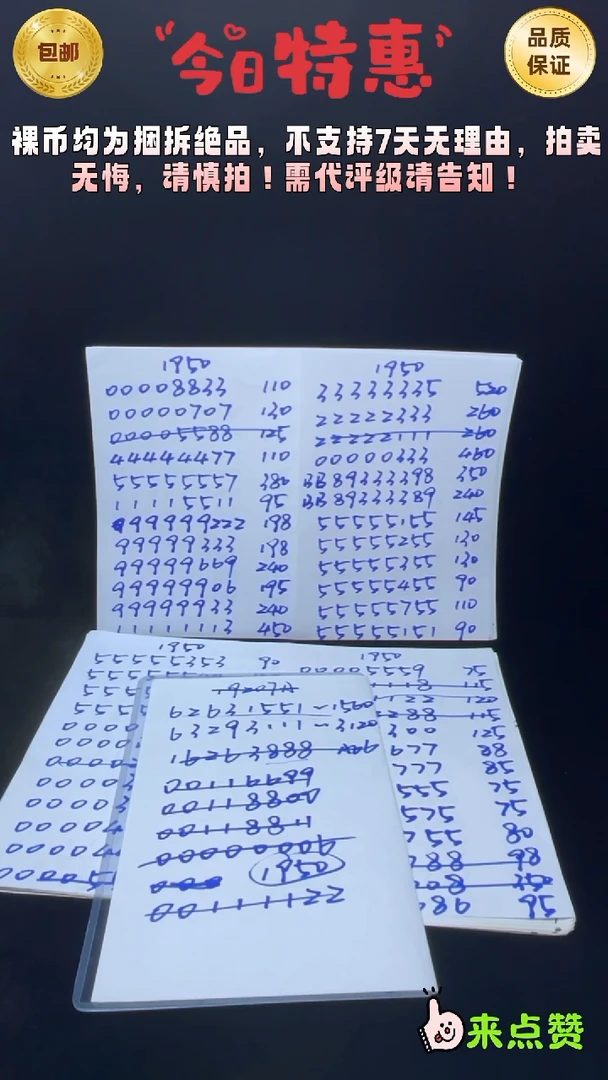 包邮
今日特惠
品质
保证
裸币均为捆拆绝品，不支持7天无理由，拍卖
无悔，请慎拍！需代评级请告知！
1950
00008833 110
00000707 130
00005588 125
44444477 110
55555557 380
11115511 95
99999222 198
99999333 198
99999669 240
99999906 195
99999933 240
11111113 450
1950
33333335 520
22222333 260
22222111 260
00000333 460
BB89333398 350
BB89333389 240
55555155 145
55555255 130
55555355 130
55555455 90
55555755 110
55555151 90
1950
55555353 90
1950
00005559 75
118 115
1122 120
288 115
300 125
677 88
777 85
555 75
575 75
755 80
288 98
208 350
086 95
62631551-1560
63293111-3120
16263888
00116699
00118800
00118811
00000006
1950
00111122
来点赞